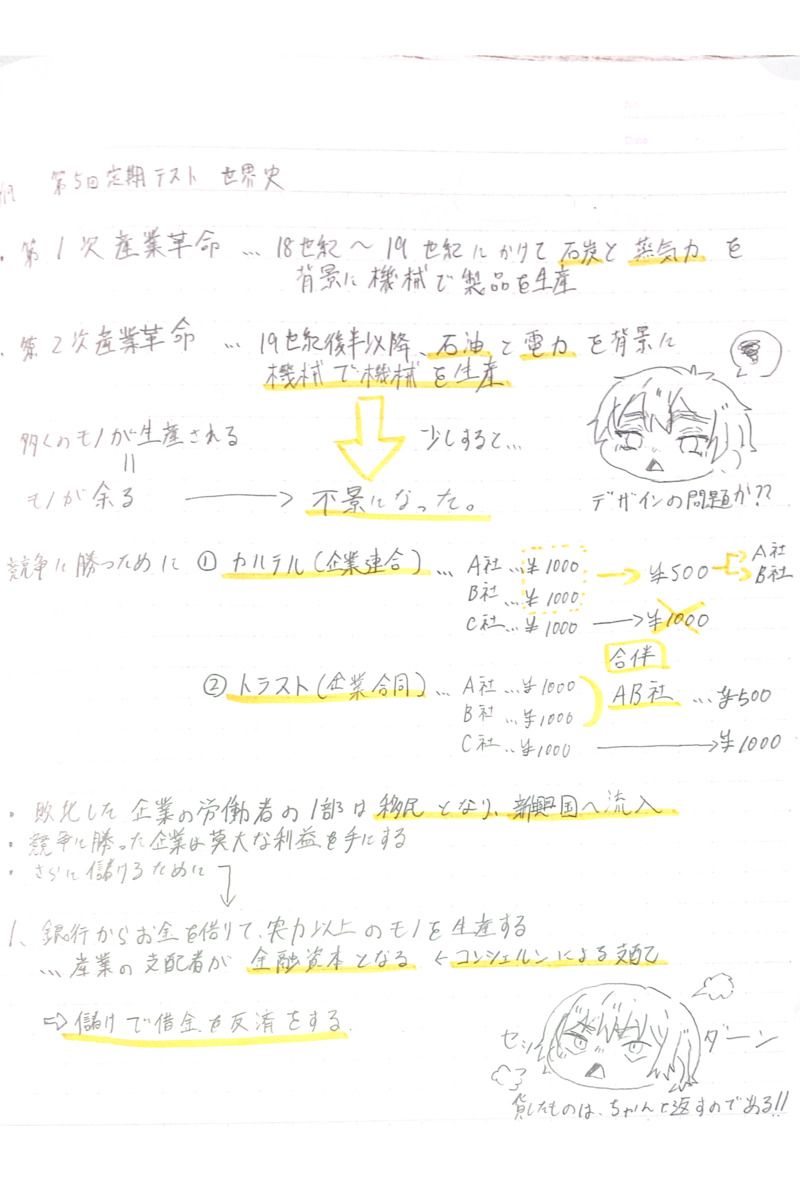 No.
Date
第5回定期テスト 世界史
・第1次産業革命 … 18世紀〜19世紀にかけて石炭と蒸気力を
背景に機械で製品を生産
・第2次産業革命 … 19世紀後半以降、石油と電力を背景に
機械で機械を生産
多くのモノが生産される
少しすると…
||
モノが余る → 不景になった。
デザインの問題か??
競争に勝つために ① カルテル(企業連合) … A社…¥1000 → ¥500 A社
B社…¥1000 B社
C社…¥1000 → ¥1000
合併
② トラスト(企業合同) … A社…¥1000 AB社 …¥500
B社…¥1000
C社…¥1000 → ¥1000
・敗北した企業の労働者の1部は移民となり、新興国へ流入
・競争に勝った企業は莫大な利益を手にする
・さらに儲けるために
1、銀行からお金を借りて、実力以上のモノを生産する
…産業の支配者が金融資本となる ← コンツェルンによる支配
⇨儲けで借金を反済をする
ダーン
貸したものは、ちゃんと返すのである!!